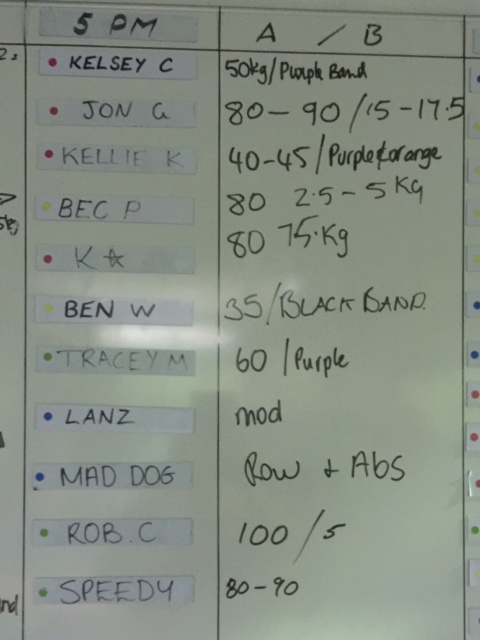 5 PM A / B
KELSEY C 50kg/Purple Band
JON G 80-90/15-17.5
KELLIE K 40-45/Purple&orange
BEC P 80 2.5-5KG
K☆ 80 75.Kg
BEN W 35/BLACK BAND.
TRACEY M 60/Purple
LANZ mod
MAD DOG Row + Abs
ROB.C 100/5
SPEEDY 80-90